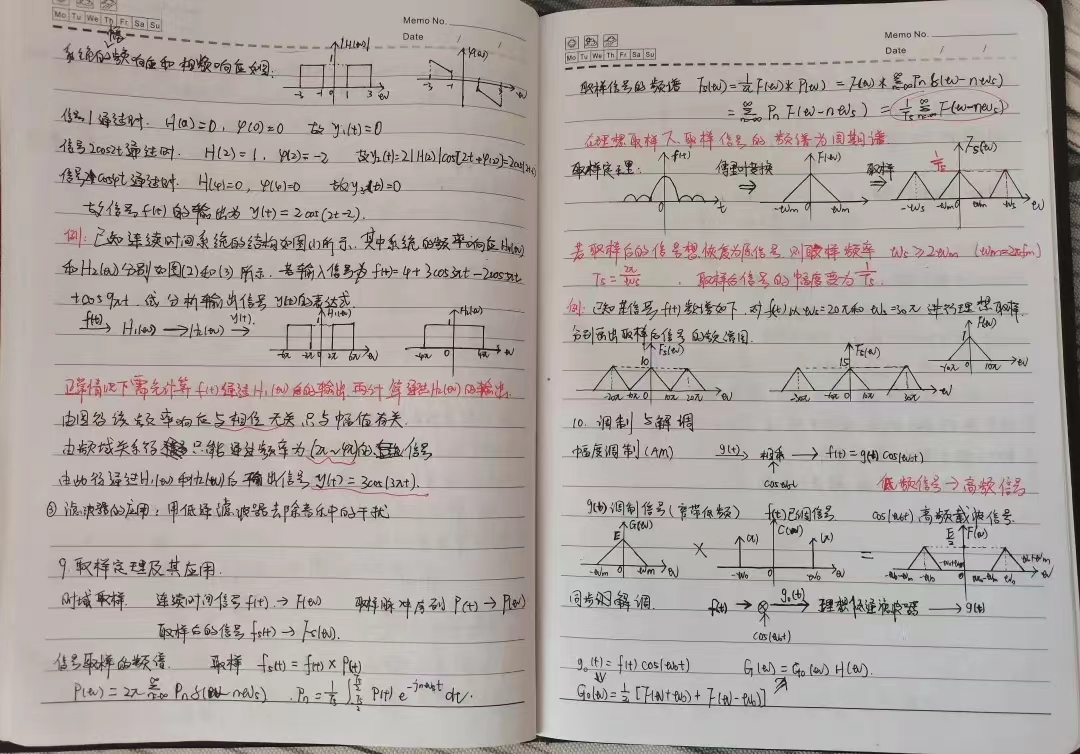 Mo Tu We Th Fr Sa Su
Memo No.
Date / /
系统的幅频响应和相频响应如图:
|H(ω)| 1 -3 -1 0 1 3 ω
φ(ω) -3 -1 3 ω
信号1通过时. H(0)=0, φ(0)=0 故 y₁(t)=0
信号2cos2t通过时. H(2)=1, φ(2)=-2 故y₂(t)=2|H(2)|cos[2t+φ(2)]=2cos(2t-2)
信号cos4t通过时. H(4)=0, φ(4)=0 故y₃(t)=0
故信号f(t)的输出为 y(t)=2cos(2t-2).
例: 已知连续时间系统的结构如图(1)所示, 其中系统的频率响应H₁(ω)
和H₂(ω)分别如图(2)和(3)所示. 若输入信号为 f(t)=4+3cos3πt-2cos5πt
+cos9πt. 试分析输出信号y(t)的表达式.
f(t) → H₁(ω) → H₂(ω) → y(t).
H₁(ω) 1 -6π -2π 0 2π 6π ω
H₂(ω) 1 -4π 0 4π ω
情况下需先计算f(t)通过H₁(ω)后的输出. 再计算通过H₂(ω)的输出.
由图得该频率响应与相位无关, 只与幅值有关.
由频域关系得 只能通过频率为(2π~4π)的 信号
由此得通过H₁(ω)和H₂(ω)后输出信号y(t)=3cos(3πt).
③ 滤波器的应用: 用低通滤波器去除音乐中的干扰
9. 取样定理及其应用.
时域取样. 连续时间信号f(t) → F(ω) 取样脉冲序列 P(t) → P(ω)
取样后的信号 fs(t) → Fs(ω).
信号取样的频谱. 取样 fs(t)=f(t)×P(t)
P(ω)=2π Σ_{n=-∞}^{∞} Pn δ(ω-nωs) . Pn=1/Ts ∫_{-Ts/2}^{Ts/2} P(t) e^{-jnωst} dt.
Mo Tu We Th Fr Sa Su
Memo No.
Date / /
取样信号的频谱 Fs(ω)=1/2π F(ω)*P(ω) = F(ω)*Σ_{n=-∞}^{∞} Pn δ(ω-nωs)
= Σ_{n=-∞}^{∞} Pn F(ω-nωs) = 1/Ts Σ_{n=-∞}^{∞} F(ω-nωs)
在理想取样下, 取样信号的频谱为周期谱.
取样定理: f(t) 0 t 傅里叶变换 ⇒ F(ω) -ωm 0 ωm ω 取样 ⇒ 1/Ts Fs(ω) -ωs -ωm 0 ωm ωs ω
若取样后的信号想恢复为原信号 则取样频率 ωs≥2ωm (ωm=2πfm)
Ts=2π/ωs . 取样后信号的幅度变为1/Ts.
例: 已知某信号f(t)频谱如下. 对f(t)以ωs=20π和ωs=30π进行理想取样
分别画出取样后信号的频谱图.
F(ω) 1 -10π 0 10π ω
10 Fs(ω) -20π -10π 0 10π 20π ω
15 Fs(ω) -30π -10π 0 10π 30π ω
10. 调制与解调
幅度调制(AM) g(t) → 相乘 → f(t)=g(t)cos(ω₀t)
cosω₀t
低频信号→高频信号
g(t)调制信号(宽带低频) f(t)已调信号 cos(ω₀t)高频载波信号.
E G(ω) -ωm ωm ω × (π) C(ω) (π) -ω₀ 0 ω₀ ω = E/2 F(ω) -ω₀-ωm -ω₀ -ω₀+ωm 0 ω₀-ωm ω₀ ω₀+ωm ω
同步解调. f(t) → ⊗ g₀(t) → 理想低通滤波器 → g(t)
cos(ω₀t)
g₀(t)=f(t)cos(ω₀t) G(ω)=G₀(ω)H(ω).
G₀(ω)=1/2[F(ω+ω₀)+F(ω-ω₀)]